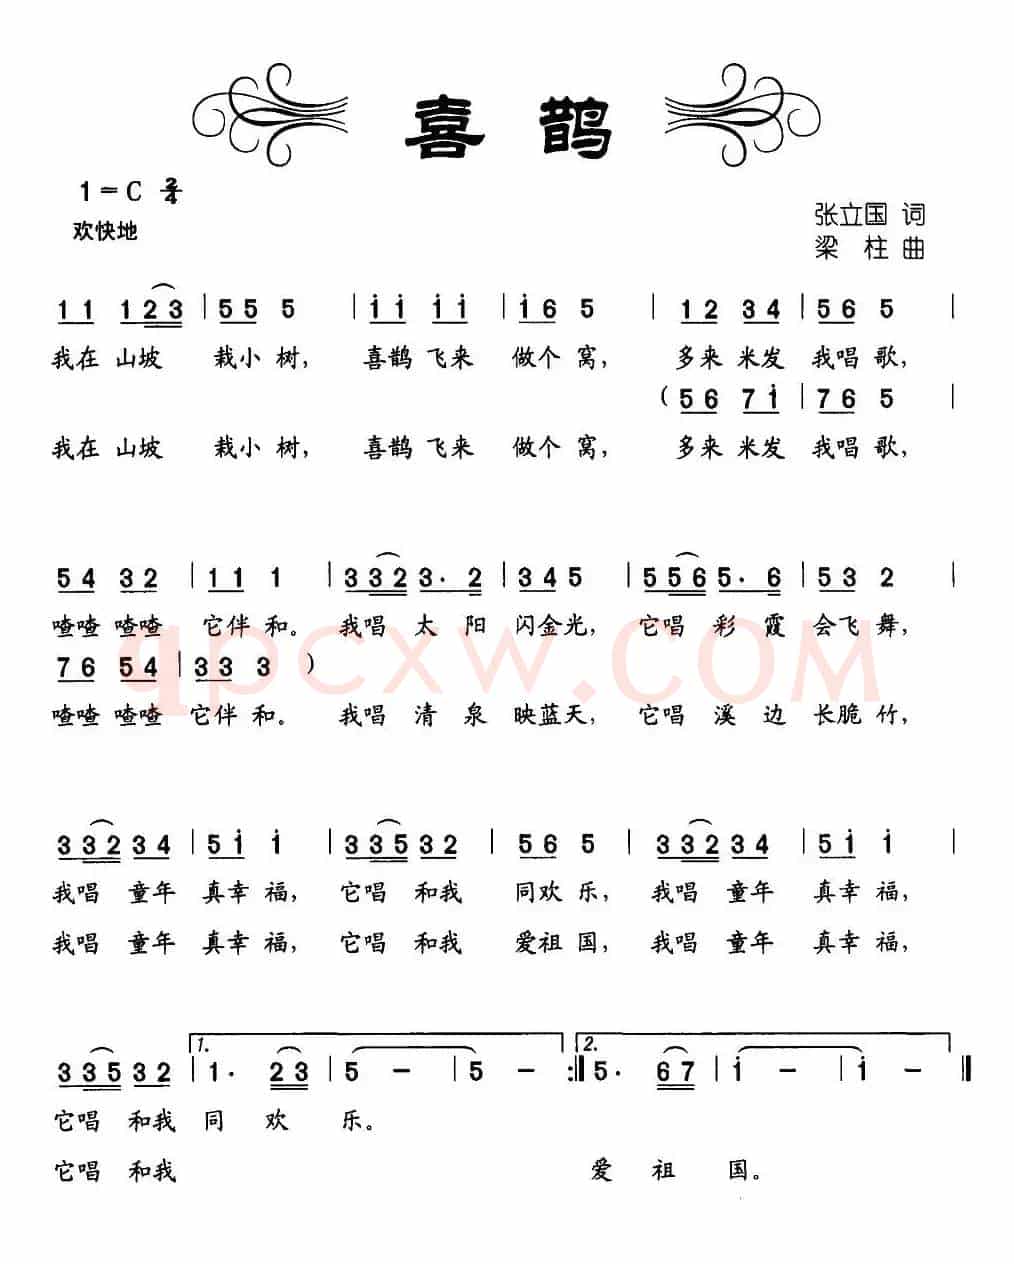 喜鹊
1=C 2/4
欢快地
张立国 词
梁 柱 曲
1 1 1 2 3 | 5 5 5 | i i i i | i 6 5 | 1 2 3 4 | 5 6 5 |
我在 山坡 栽小 树， 喜鹊 飞来 做个 窝， 多来 米发 我唱 歌，
( 5 6 7 i | 7 6 5 |
我在 山坡 栽小 树， 喜鹊 飞来 做个 窝， 多来 米发 我唱 歌，
5 4 3 2 | 1 1 1 | 3 3 2 3· 2 | 3 4 5 | 5 5 6 5· 6 | 5 3 2 |
喳喳 喳喳 它伴 和。 我唱 太 阳 闪金光， 它唱 彩 霞 会飞 舞，
7 6 5 4 | 3 3 3 )
喳喳 喳喳 它伴 和。 我唱 清 泉 映蓝天， 它唱 溪 边 长脆 竹，
qpcxw.COM
3 3 2 3 4 | 5 i i | 3 3 5 3 2 | 5 6 5 | 3 3 2 3 4 | 5 i i |
我唱 童年 真幸 福， 它唱 和我 同欢 乐， 我唱 童年 真幸 福，
我唱 童年 真幸 福， 它唱 和我 爱祖 国， 我唱 童年 真幸 福，
1. 2.
3 3 5 3 2 | 1· 2 3 | 5 – | 5 – :‖ 5· 6 7 | i – | i – ‖
它唱 和我 同 欢 乐。
它唱 和我 爱 祖 国。